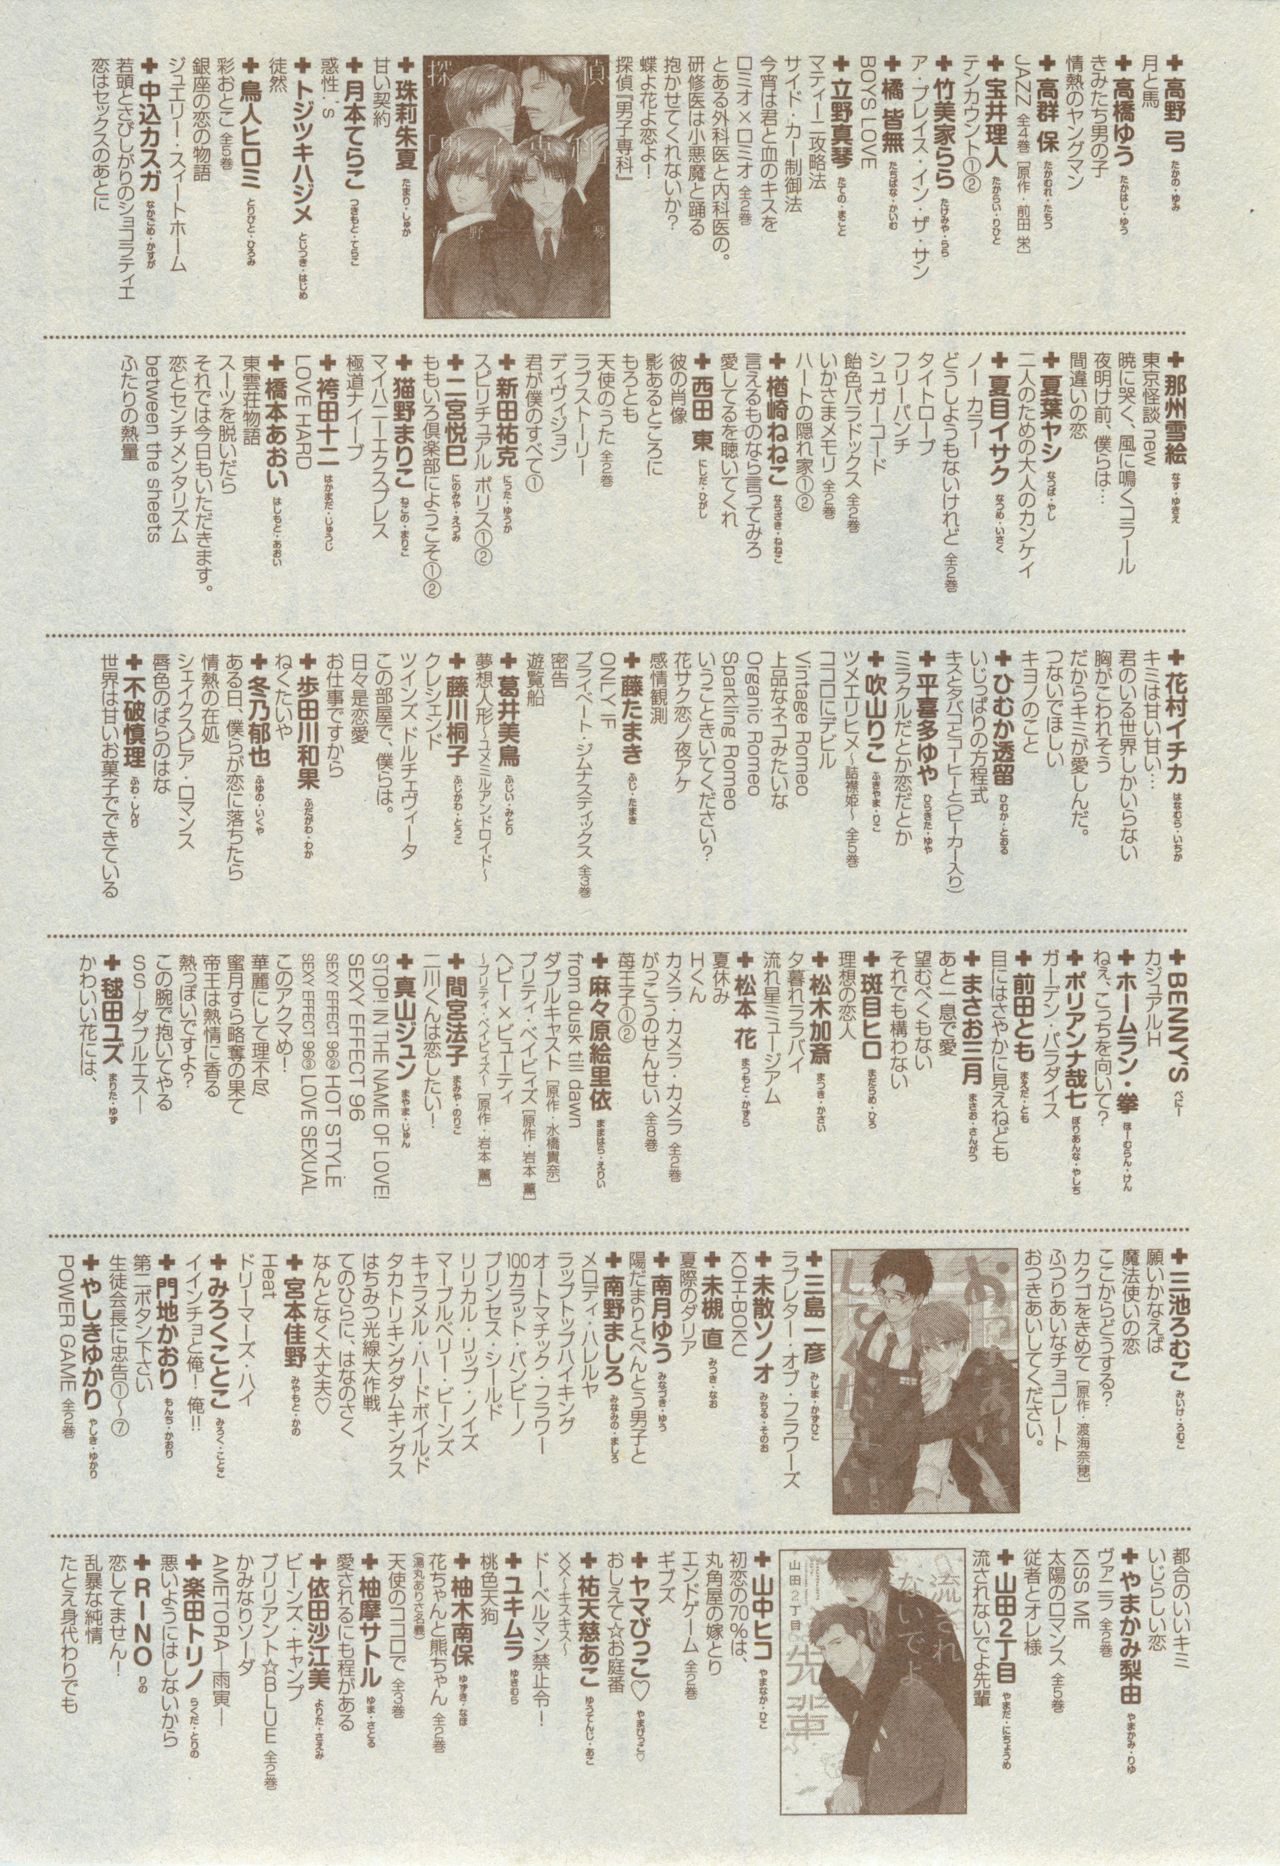 ✚高野 弓 たかの・ゆみ
月と馬
✚高橋ゆう たかはし・ゆう
きみたち男の子
情熱のヤングマン
✚高群 保 たかむれ・たもつ
JAZZ 全4巻 [原作・前田 栄]
✚宝井理人 たからい・りひと
テンカウント①②
✚竹美家らら たけみや・らら
ア・プレイス・イン・ザ・サン
✚橘 皆無 たちばな・かいむ
BOYS LOVE
✚立野真琴 たての・まこと
マティーニ攻略法
サイド・カー制御法
今宵は君と血のキスを
ロミオ×ロミオ 全2巻
とある外科医と内科医の。
研修医は小悪魔と踊る
抱かせてくれないか?
蝶よ花よ恋よ!
探偵『男子専科』
探偵
「男子専科」
立野真琴
✚珠莉朱夏 たまり・しゅか
甘い契約
✚月本てらこ つきもと・てらこ
惑性:s
✚トジツキハジメ とじつき・はじめ
徒然
✚鳥人ヒロミ とりひと・ひろみ
彩おとこ 全5巻
銀座の恋の物語
ジュエリー・スィートホーム
✚中込カスガ なかごめ・かすが
若頭とさびしがりのショコラティエ
恋はセックスのあとに
✚那州雪絵 なす・ゆきえ
東京怪談 new
暁に哭く、風に鳴くコラール
夜明け前、僕らは…
間違いの恋
✚夏葉ヤシ なつば・やし
二人のための大人のカンケイ
✚夏目イサク なつめ・いさく
ノー・カラー
どうしようもないけれど 全2巻
タイトロープ
フリーパンチ
シュガーコード
飴色パラドックス 全2巻
いかさまメモリ 全2巻
ハートの隠れ家①②
✚楢崎ねねこ ならざき・ねねこ
言えるものなら言ってみろ
愛してるを聴いてくれ
✚西田 東 にしだ・ひがし
彼の肖像
影あるところに
もろとも
天使のうた 全2巻
ラブストーリー
ディヴィジョン
君が僕のすべて①
✚新田祐克 にった・ゆうか
スピリチュアル ポリス①②
✚二宮悦巳 にのみや・えつみ
ももいろ倶楽部にようこそ①②
✚猫野まりこ ねこの・まりこ
マイハニーエクスプレス
極道ナイーブ
✚袴田十二 はかまだ・じゅうじ
LOVE HARD
✚橋本あおい はしもと・あおい
東雲荘物語
スーツを脱いだら
それでは今日もいただきます。
恋とセンチメンタリズム
between the sheets
ふたりの熱量
✚花村イチカ はなむら・いちか
キミは甘い甘い…
君のいる世界しかいらない
胸がこわれそう
だからキミが愛しんだ。
つないでほしい
キヨノのこと
✚ひむか透留 ひむか・とおる
いじっぱりの方程式
キスとタバコとコーヒーと(ビーカー入り)
✚平喜多ゆや ひらきた・ゆや
ミラクルだとか恋だとか
✚吹山りこ ふきやま・りこ
ツメエリヒメ~詰襟姫~ 全5巻
ココロにデビル
Vintage Romeo
上品なネコみたいな
Organic Romeo
Sparkling Romeo
いうこときいてください?
花サク恋ノ夜アケ
感情観測
✚藤たまき ふじ・たまき
ONLY IF
プライベート・ジムナスティックス 全3巻
密告
遊覧船
✚葛井美鳥 ふじい・みどり
夢想人形~ユメミルアンドロイド~
✚藤川桐子 ふじかわ・とうこ
クレシェンド
ツインズ ドルチェヴィータ
この部屋で、僕らは。
日々是恋愛
お仕事ですから
✚歩田川和果 ふだがわ・わか
ねくたいや
✚冬乃郁也 ふゆの・いくや
ある日、僕らが恋に落ちたら
情熱の在処
シェイクスピア・ロマンス
唇色のばらのはな
✚不破慎理 ふわ・しんり
世界は甘いお菓子でできている
✚BENNY'S ベにー
カジュアルH
✚ホームラン・拳 ほーむらん・けん
ねぇ、こっちを向いて?
✚ポリアンナ哉七 ぽりあんな・やしち
ガーデン・パラダイス
✚前田とも まえだ・とも
目にはさやかに見えねども
✚まさお三月 まさお・さんがつ
あと一息で愛
望むべくもない
それでも構わない
✚斑目ヒロ まだらめ・ひろ
理想の恋人
✚松木加斎 まつき・かさい
夕暮れララバイ
流れ星ミュージアム
✚松本 花 まつもと・かずら
夏休み
Hくん
カメラ・カメラ・カメラ 全2巻
がっこうのせんせい 全8巻
苺王子①②
✚麻々原絵里依 ままはら・えりい
from dusk till dawn
ダブルキャスト [原作・水橋貴奈]
プリティ・ベイビィズ [原作・岩本 薫]
ベビー×ビューティ
~プリティ・ベイビィズ~ [原作・岩本 薫]
✚間宮法子 まみや・のりこ
二川くんは恋したい!
✚真山ジュン まやま・じゅん
STOP! IN THE NAME OF LOVE!
SEXY EFFECT 96
SEXY EFFECT 96② HOT STYLE
SEXY EFFECT 96③ LOVE SEXUAL
このアクマめ!
華麗にして理不尽
蜜月すら略奪の果て
帝王は熱情に香る
熱っぽいですよ?
この腕で抱いてやる
SS―ダブルエス―
✚毬田ユズ まりた・ゆず
かわいい花には、
✚三池ろむこ みいけ・ろむこ
願いかなえば
魔法使いの恋
ここからどうする?
カクゴをきめて [原作・渡海奈穂]
ふつりあいなチョコレート
おつきあいしてください。
✚三島一彦 みしま・かずひこ
ラブレター・オブ・フラワーズ
✚未散ソノオ みちる・そのお
KOH-BOKU
✚未槻 直 みつき・なお
夏際のダリア
✚南月ゆう みなつき・ゆう
陽だまりとべんとう男子と
✚南野ましろ みなみの・ましろ
メロディ・ハレルヤ
ラップトップハイキング
オートマチック・フラワー
100カラット・バンビーノ
プリンセス・シールド
リリカル・リップ・ノイズ
マーブルベリー・ビーンズ
キャラメル・ハードボイルド
タカトリキングダムキングス
はちみつ光線大作戦
てのひらに、はなのさく
なんとなく大丈夫♡
✚宮本佳野 みやもと・かの
Heat
ドリーマーズ・ハイ
✚みろくことこ みろく・ことこ
イインチョと俺! 俺!!
✚門地かおり もんち・かおり
第二ボタン下さい
生徒会長に忠告①~⑦
✚やしきゆかり やしき・ゆかり
POWER GAME 全2巻
都合のいいキミ
いじらしい恋
✚やまかみ梨由 やまかみ・りゆ
ヴァニラ 全2巻
KISS ME
太陽のロマンス 全5巻
従者とオレ様
✚山田2丁目 やまだ・にちょうめ
流されないでよ先輩
流され
ないでよ
先輩
山田2丁目
✚山中ヒコ やまなか・ひこ
初恋の70%は、
丸角屋の嫁とり
エンドゲーム 全2巻
ギブズ
✚ヤマびっこ♡ やまびっこ♡
おしえて☆お庭番
✚祐天慈あこ ゆうてんじ・あこ
××~キスキス~
ドーベルマン禁止令!
✚ユキムラ ゆきむら
桃色天狗
✚柚木南保 ゆずき・なほ
花ちゃんと熊ちゃん 全2巻
(湯丸ありさ名義)
天使のココロで 全3巻
✚柚摩サトル ゆま・さとる
愛されるにも程がある
✚依田沙江美 よりだ・さえみ
ビーンズ・キャンプ
ブリリアント☆BLUE 全2巻
かみなりソーダ
AMETORA―雨寅―
✚楽田トリノ らくだ・とりの
悪いようにはしないから
✚R-INO りの
恋してません!
乱暴な純情
たとえ身代わりでも